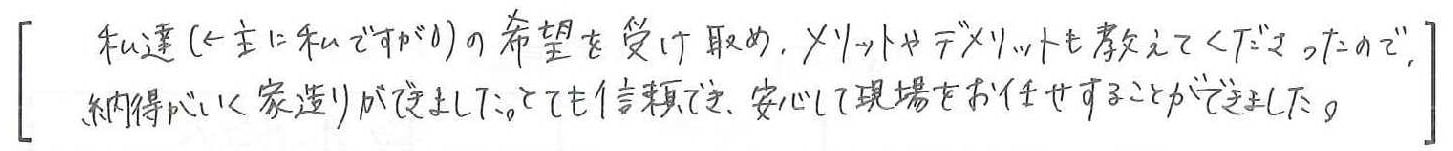 私達(←主に私ですが!)の希望を受け取め、メリットやデメリットも教えてくださったので、
納得がいく家造りができました。とても信頼でき、安心して現場をお任せすることができました。